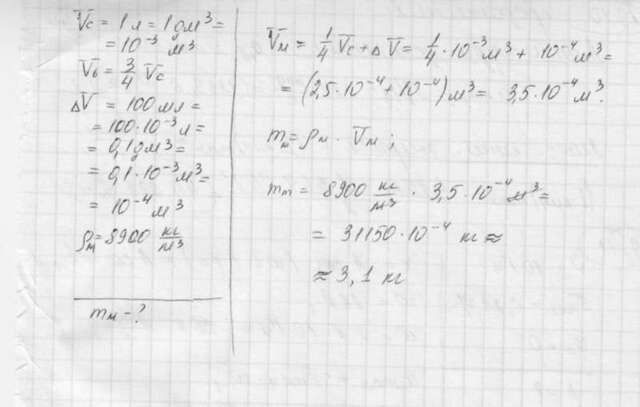 Vс = 1 л = 1 дм³ =
= 10⁻³ м³
Vв = 3/4 Vс
ΔV = 100 мл =
= 100·10⁻³ л =
= 0,1 дм³ =
= 0,1·10⁻³ м³ =
= 10⁻⁴ м³
ρм = 8900 кг/м³
mм - ?
Vм = 1/4 Vс + ΔV = 1/4·10⁻³ м³ + 10⁻⁴ м³ =
= (2,5·10⁻⁴ + 10⁻⁴) м³ = 3,5·10⁻⁴ м³.
mм = ρм · Vм ;
mм = 8900 кг/м³ · 3,5·10⁻⁴ м³ =
= 31150·10⁻⁴ кг ≈
≈ 3,1 кг